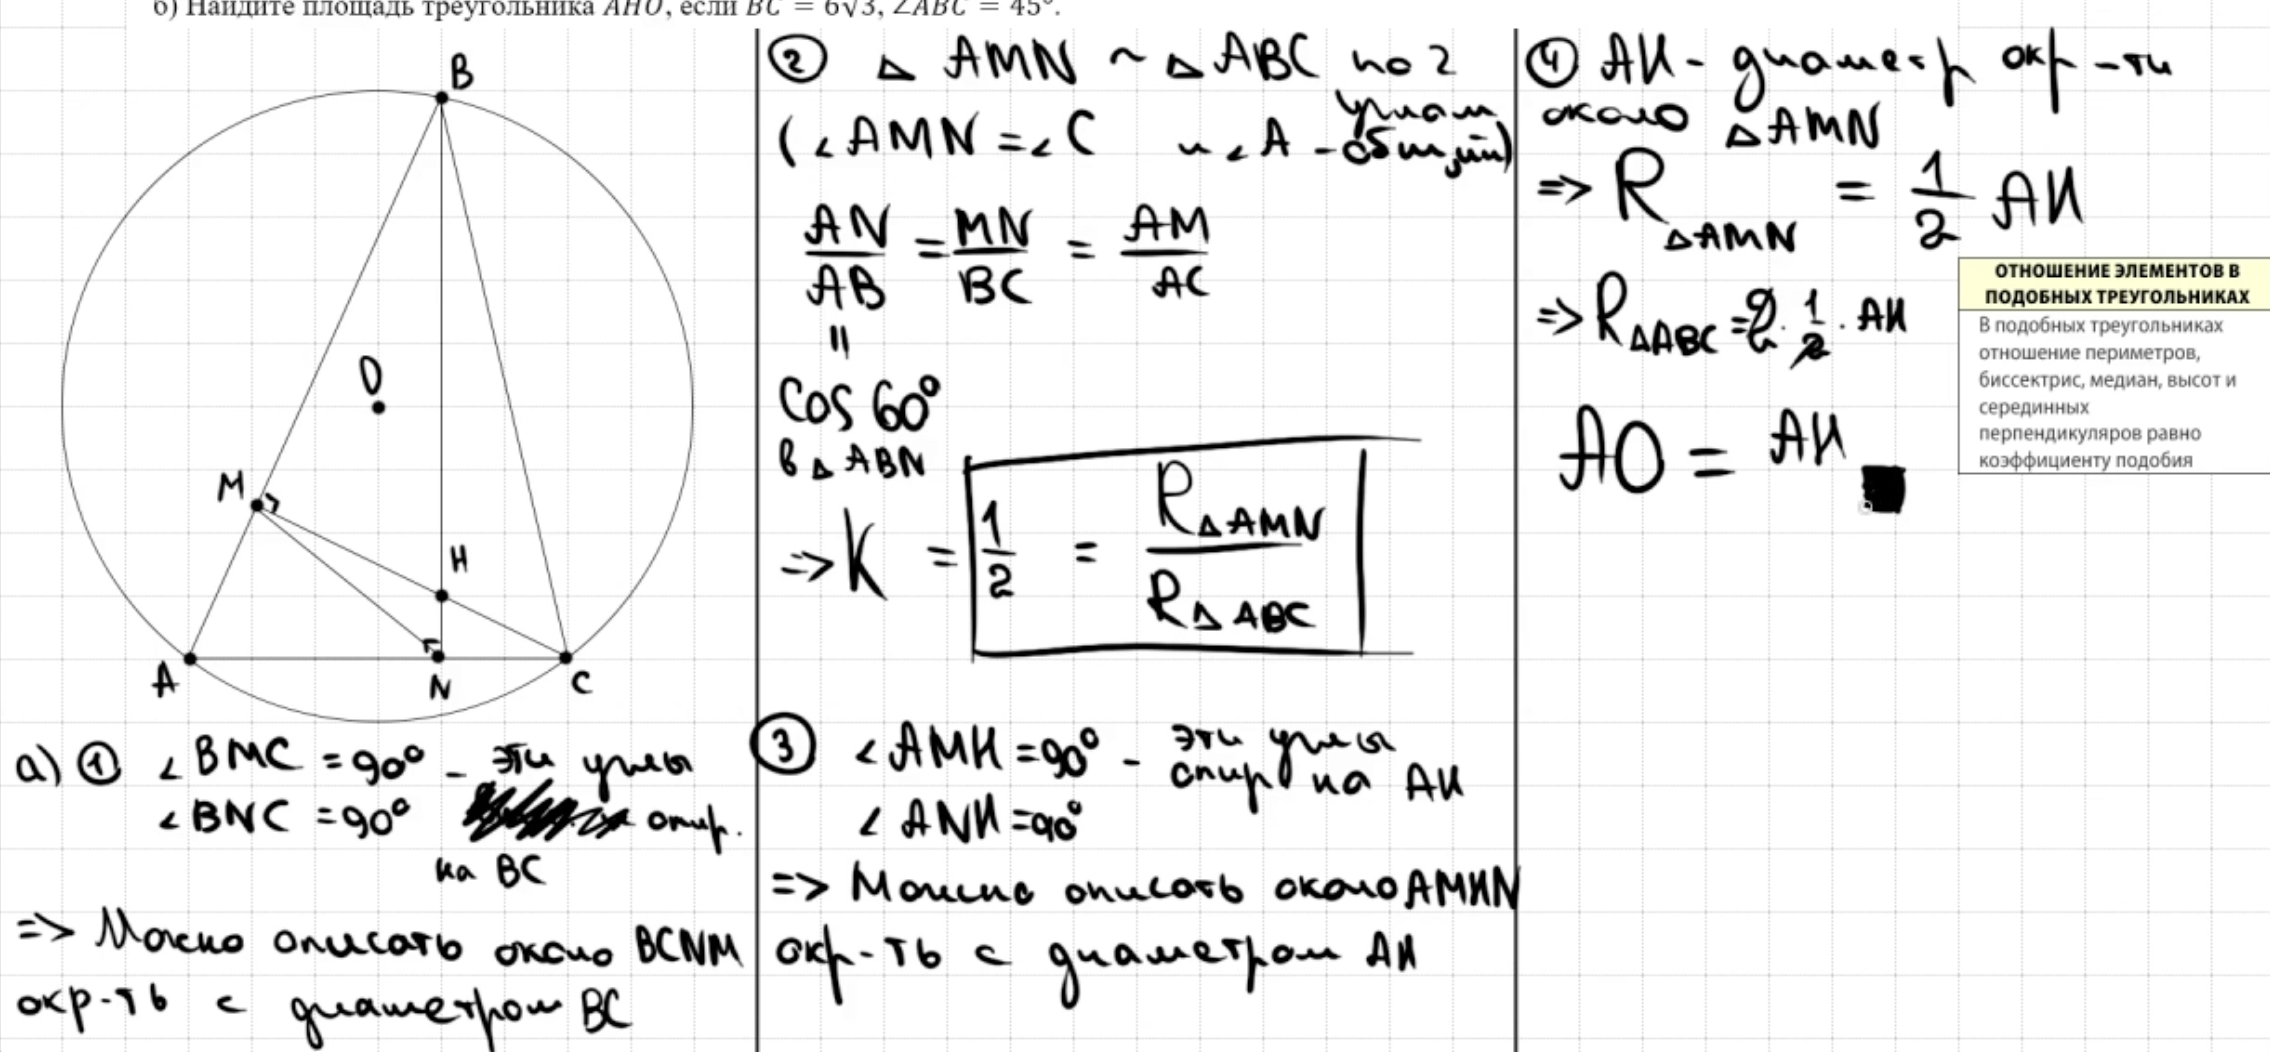 б) Найдите площадь треугольника AHO, если BC = 6√3, ∠ABC = 45°.
B
O
M
H
A
N
C
а) ① ∠BMC = 90° - эти углы
∠BNC = 90° опир.
на BC
=> Можно описать около BCNM
окр-ть с диаметром BC
② △AMN ~ △ABC по 2
углам
(∠AMN = ∠C и ∠A - общий)
AN/AB = MN/BC = AM/AC
=
cos 60°
в △ABN
=> K = 1/2 = R△AMN / R△ABC
③ ∠AMH = 90° - эти углы
опир на AH
∠ANH = 90°
=> Можно описать около AMHN
окр-ть с диаметром AH
④ AH - диаметр окр-ти
около △AMN
=> R△AMN = 1/2 AH
=> R△ABC = 2 · 1/2 · AH
AO = AH
ОТНОШЕНИЕ ЭЛЕМЕНТОВ В
ПОДОБНЫХ ТРЕУГОЛЬНИКАХ
В подобных треугольниках
отношение периметров,
биссектрис, медиан, высот и
серединных
перпендикуляров равно
коэффициенту подобия